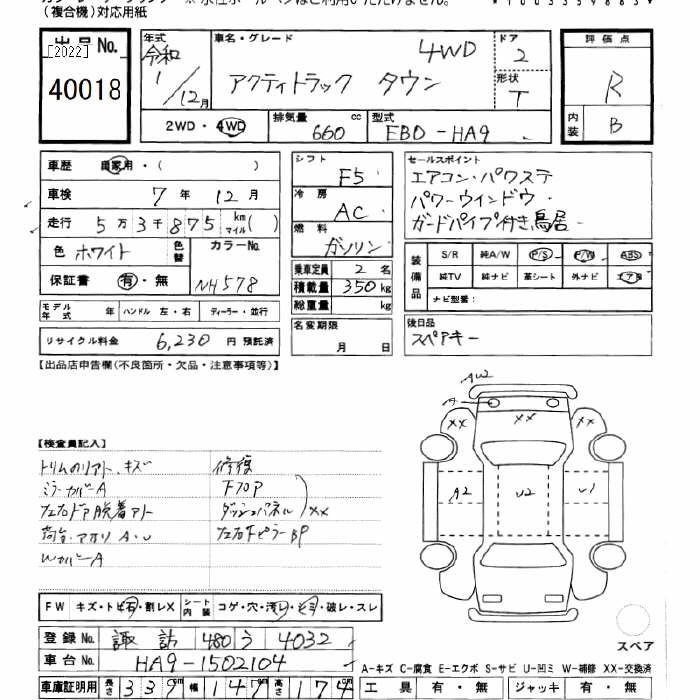 (複合機)対応用紙
出品No. [2022]
40018
年式 令和 1/12月
車名・グレード 4WD
アクティトラック タウン
ドア 2
形状 T
評価点 R
内装 B
2WD・4WD
排気量 660 cc
型式 EBD-HA9
車歴 自家用・( )
車検 7年 12月
走行 5万3千875 km マイル( )
色 ホワイト 色替
カラーNo. NH578
保証書 有・無
モデル年式 年 ハンドル 左・右 ディーラー・並行
リサイクル料金 6,230円 預託済
シフト F5
冷房 AC
燃料 ガソリン
乗車定員 2名
積載量 350kg
総重量 kg
名変期限 月 日
セールスポイント
エアコン・パワステ
パワーウインドウ・
ガードパイプ付き鳥居
装備品 S/R 純A/W P/S P/W ABS
純TV 純ナビ 革シート 外ナビ エアB
ナビ型番:
後日品
スペアキー
【出品店申告欄(不良箇所・欠品・注意事項等)】
【検査員記入】
修復
ミラーカバーA
FフロアP
左右ドア脱着アト ダッシュパネル XX
荷台・アオリ A・U
WカバーA
AW2
A
XX XX XX
A2 U2 U1
FW キズ・トビ石・割レX シート内装 コゲ・穴・汚レ・ヒョ・破レ・スレ
登録No. 諏訪 480 う 4032
車台No. HA9-1502104
車庫証明用 長さ 339cm 幅 147cm 高さ 174cm
スペア
A-キズ C-腐食 E-エクボ S-サビ U-凹ミ W-補修 XX-交換済
工具 有・無 ジャッキ 有・無